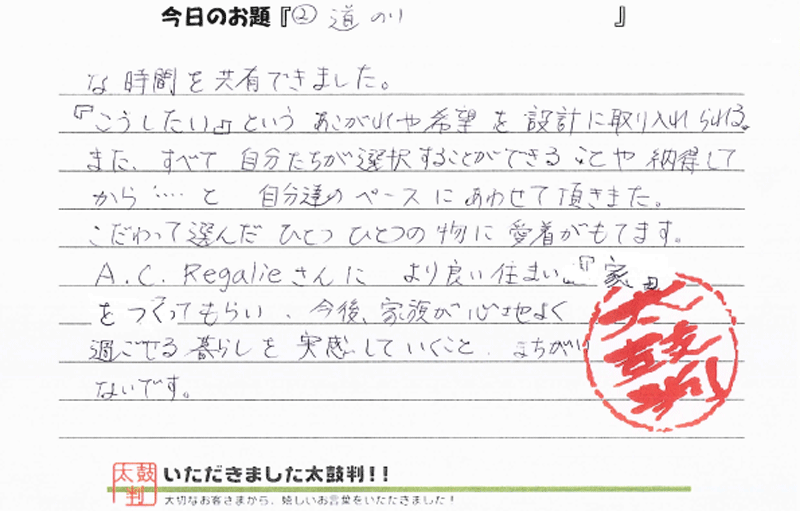 今日のお題『② 道のり 』
な時間を共有できました。
『こうしたい』という あこがれや希望を設計に取り入れられる。
また、すべて 自分たちが選択することができることや 納得して
から‥‥と 自分達のペースにあわせて頂きました。
こだわって選んだ ひとつひとつの物に愛着がもてます。
A.C.Regalieさんに より良い住まい『家』
をつくってもらい、今後、家族が心地よく
過ごせる暮らしを実感していくこと、まちがい
ないです。
太鼓判
太鼓判
いただきました太鼓判!!
大切なお客さまから、嬉しいお言葉をいただきました!